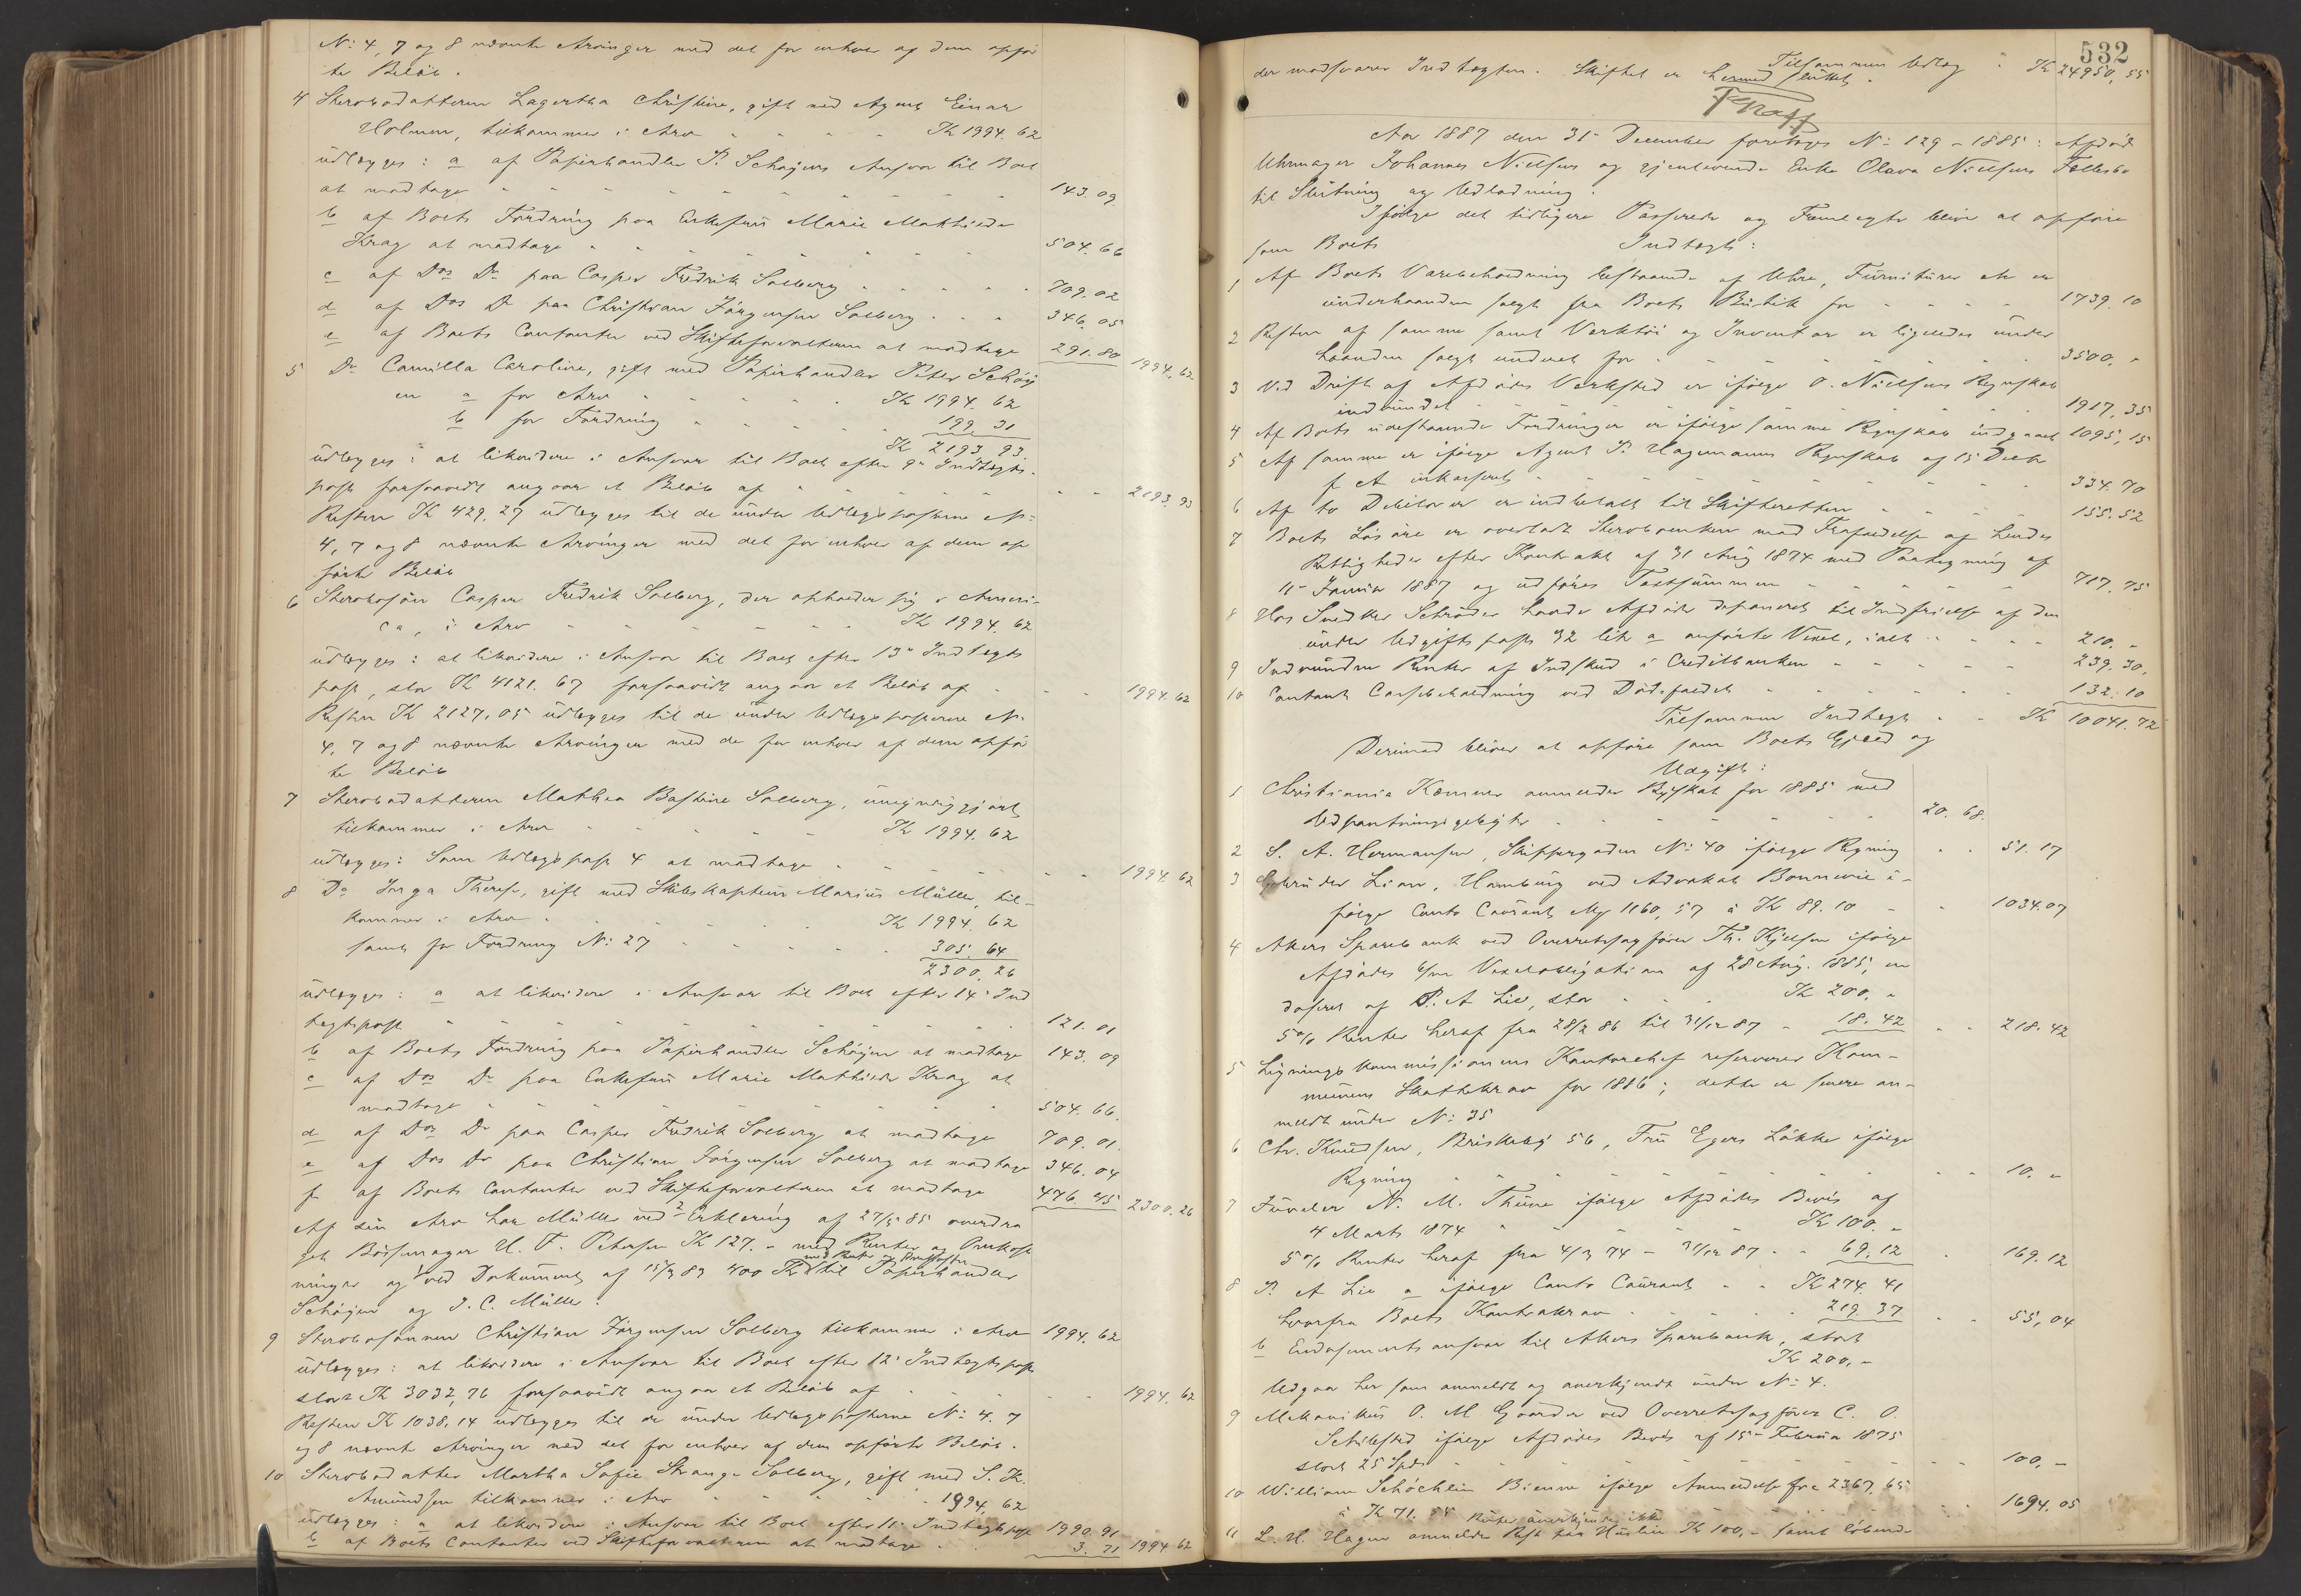 No 4, 7 og 8 nævnte Arvinger med det for enhver af dem opfør
te Beløb.
4 Sterbodatteren Lagertha Christine, gift med Agent Einar
Holmen, tilkommer i Arv - - - - Kr 1994. 62
udlægges: a af Papirhandler P. Schøyens Ansvar til Boet
at modtage - - - - - - 143. 09.
b af Boets Fordring paa Enkefru Marie Mathilde
Krag at modtage - - - - - 504. 66
c af Dos Do paa Casper Fredrik Solberg - - - - 709. 02
d af Dos Do paa Christian Jörgensen Solberg - - - 346. 05
e af Boets Contanter ved Skifteforvalteren at modtage 291. 80 1994. 62
5 Do Camilla Caroline, gift med Papirhandler Peter Schöy
en a for Arv - - - - Kr 1994. 62
b for Fordring - - - - 199. 31
Kr 2193. 93.
udlægges: at likvidere i Ansvar til Boet efter 9de Indtægts-
post forsaavidt angaar et Beløb af - - - - 2193. 93
Resten Kr 429. 27 udlægges til de under Udlægsposterne No
4, 7 og 8 nævnte Arvinger med det for enhver af dem op
førte Beløb
6 Sterbosøn Casper Fredrik Solberg, der opholder sig i Ameri-
ca, i Arv - - - - - Kr 1994. 62
udlægges: at likvidere i Ansvar til Boet efter 13de Indtægts
post, stor Kr 4121. 67 forsaavidt angaar et Beløb af - - - 1994. 62
Resten Kr 2127. 05 udlægges til de under Udlægsposterne No
4, 7 og 8 nævnte Arvinger med de for enhver af dem opfør
te Beløb
7 Sterbodatteren Mathea Bastine Solberg, umyndiggjort,
tilkommer i Arv - - - - Kr 1994. 62
udlægges: Som Udlægspost 4 at modtage - - - - 1994. 62
8 Do Inga Therese, gift med Skibskaptein Marius Müller, til-
kommer i Arv - - - - Kr 1994. 62
samt for Fordring No 27 - - - - 305. 64
2300. 26
udlægges: a at likvidere i Ansvar til Boet efter 14de Ind
tægtspost - - - - - - 121. 01
b af Boets Fordring paa Papirhandler Schöyen at modtage 143. 09
c af Dos Do paa Enkefru Marie Mathilde Krag at
modtage - - - - - - 504. 66.
d af Dos Do paa Casper Fredrik Solberg at modtage 709. 01.
e af Dos Do paa Christian Jörgensen Solberg at modtage 346. 04
f af Boets Contanter ved Skifteforvalteren at modtage 476. 45 2300. 26
Af sin Arv har Müller ved Erklæring af 27/5 85 overdra
get Børsemager H. T. Petersen Kr 127. - med Renter og Omkost
ninger og ved Dokument af 15/3 83 400 Kr med Renter og Omkostn. til Papirhandler
Schöyen og J. C. Müller.
9 Sterbosønnen Christian Jörgensen Solberg tilkommer i Arv 1994. 62
udlægges: at likvidere i Ansvar til Boet efter 12te Indtægtspost
stort Kr 3032, 76 forsaavidt angaar et Beløb af - - - - 1994. 62
Resten Kr 1038. 14 udlægges til de under Udlægsposterne No 4. 7
og 8 nævnte Arvinger med det for enhver af dem opførte Beløb.
10 Sterbodatter Martha Sofie Strange Solberg, gift med S. K.
Amundsen tilkommer i Arv - - - 1994. 62
udlægges: a at likvidere i Ansvar til Boet efter 11te Indtægtspost 1990. 91
b af Boets Contanter ved Skifteforvalteren at modtage - 3. 71 1994 62
532
Tilsammen Udlæg : Kr 24950, 55
der modsvarer Indtægten. Skiftet er hermed sluttet.
Aar 1887 den 31te December foretoges No 129 - 1885: Afdød
Uhrmager Johannes Nielsens og gjenlevende Enke Olava Nielsens Fællesbo
til Slutning og Udlodning.
Ifølge det tidligere Passerede og Fremlagte bliver at opføre
som Boets Indtægt:
1 Af Boets Varebeholdning bestaaende af Uhre, Furniturer etc er
underhaanden solgt fra Boets Butik for - - - - 1739. 10
2 Resten af samme samt Værktøi og Inventar er ligeledes under
haanden solgt undtat for - - - - - 3500. -
3 Ved Drift af Afdødes Værksted er ifølge O. Nielsens Regnskab
indvundet - - - - - - 1917. 35
4 Af Boets udestaaende Fordringer er ifølge samme Regnskab indgaaet 1095, 15
5 Af samme er ifølge Agent P. Hagemanns Regnskab af 15 Decbr
f. A inkasseret - - - - - - 334. 70
6 Af to Debitorer er indbetalt til Skifteretten - - - - 155. 52
7 Boets Løsøre er overladt Sterboenken mod Frafaldelse af hendes
Rettigheder efter Kontrakt af 31 Aug 1874 med Paategning af
11te Januar 1887 og udføres Taxtsummen - - - - 717. 75
8 Hos Snedker Schrøder havde Afdøde deponeret til Indfrielse af den
under Udgiftspost 32 litr a anførte Vexel, ialt - - - - 210. -
9 Indvundne Renter af Indskud i Creditbanken - - - - 239. 30.
10 Contant Cassebeholdning ved Dødsfaldet - - - - 132. 10
Tilsammen Indtægt - - Kr 10041. 72
Derimod bliver at opføre som Boets Gjæld og
Udgift:
1 Christiania Kæmner anmelder Byskat for 1885 med
Udpantningsgebyhr - - - - - 20. 68.
2 S. A. Hermansen, Skippergaden No 40 ifølge Regning - - 51. 17
3 Gebrüder Lion, Hamburg ved Advokat Bonnevie i-
følge Conto Courant My 1160, 57 à Kr 89. 10 - - 1034. 07
4 Akers Sparebank ved Overretssagfører Th. Kjelsen ifølge
Afdødes 6/m Vexelobligation af 28 Aug. 1885, en
dosseret af P. A Lie, stor - - - Kr 200. -
5% Renter heraf fra 28/2 86 til 31/12 87 - 18. 42 - - 218. 42
5 Ligningskommissionens Kontorchef reserverer Kom-
munens Skattekrav for 1886; dette er senere an-
meldt under No: 35
6 Chr. Knudsen, Briskeby 56, Fru Egers Løkke ifølge
Regning - - - - - - 10. -
7 Juveler N. M. Thune ifølge Afdødes Bevis af
4 Marts 1874 - - - - Kr 100. -
5% Renter heraf fra 4/3 74 - 31/12 87 - - 69. 12 - 169. 12
8 P. A Lie a ifølge Conto Courant - - Kr 274. 41
hvorfra Boets Kontrakrav - - - - 219. 37 - - 55, 04
b Endossementsansvar til Akers Sparebank, stort
Kr 200, -
Udgaar her som anmeldt og anerkjendt under No 4.
9 Mekanikus O. M Gaarder ved Overretssagfører C. O.
Schibsted ifølge Afdødes Bevis af 15de Februar 1875
stort 25 Spd - - - - - - 100. -
10 William Schöchlin Bienne ifølge Anmeldelse frc 2367, 65
à Kr 71. 55 Renter anerkjendes ikke - - - 1694. 05
11 L. H. Hagen anmelder Rest paa Husleie Kr 100, - samt løbende